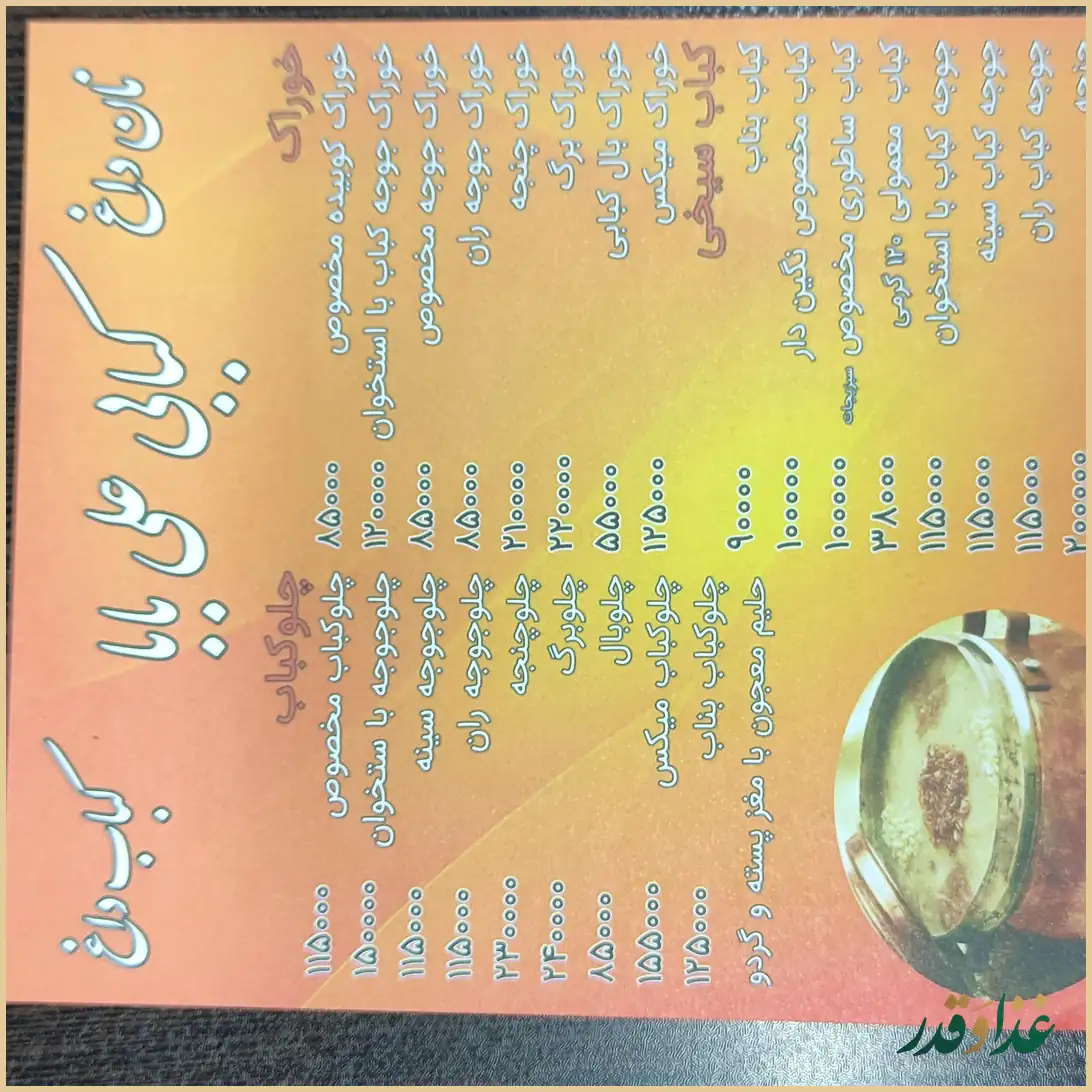 نان داغ کبابی علی بابا کباب داغ
خوراک
خوراک کوبیده مخصوص ۸۵۰۰۰
خوراک جوجه کباب با استخوان ۱۲۰۰۰۰
خوراک جوجه مخصوص ۸۵۰۰۰
خوراک جوجه ران ۸۵۰۰۰
خوراک چنجه ۲۱۰۰۰۰
خوراک برگ ۲۲۰۰۰۰
خوراک بال کبابی ۵۵۰۰۰
خوراک میکس ۱۲۵۰۰۰
کباب سیخی
کباب بناب ۹۰۰۰۰
کباب مخصوص نگین دار ۱۰۰۰۰۰
کباب ساطوری مخصوص سبزیجات ۱۰۰۰۰۰
کباب معمولی ۱۲۰ گرمی ۳۸۰۰۰
جوجه کباب با استخوان ۱۱۵۰۰۰
جوجه کباب سینه ۱۱۵۰۰۰
جوجه کباب ران ۱۱۵۰۰۰
چلوکباب
چلوکباب مخصوص ۱۱۵۰۰۰
چلوجوجه با ستخوان ۱۵۰۰۰۰
چلوجوجه سینه ۱۱۵۰۰۰
چلوجوجه ران ۱۱۵۰۰۰
چلوچنجه ۲۳۰۰۰۰
چلوبرگ ۲۴۰۰۰۰
چلوبال ۸۵۰۰۰
چلوکباب میکس ۱۵۵۰۰۰
چلوکباب بناب ۱۲۵۰۰۰
حلیم معجون با مغز پسته و گردو
غذا و قدر